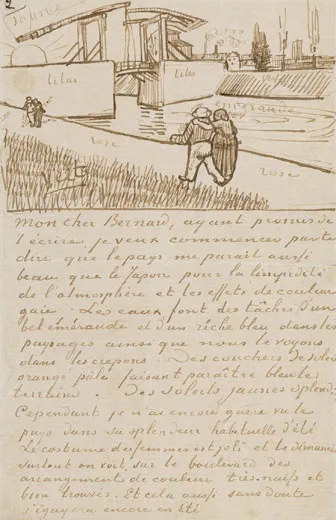 2
jaune
lilas
lilas
émeraude
rose
vert
rose
Mon cher Bernard, ayant promis de
t'écrire je veux commencer par te
dire que le pays me parait aussi
beau que le Japon pour la limpidité
de l'atmosphère et les effets de couleur
gaie. Les eaux font des tâches d'un
bel émeraude et d'un riche bleu dans les
paysages ainsi que nous le voyons
dans les crepons. Des couchers de soleil
orangé pâle faisant paraître bleus les
terrains. Des soleils jaunes splend.
Cependant je n'ai encore guère vu le
pays dans sa splendeur habituelle d'été
Le costume des femmes est joli et le dimanche
surtout on voit sur le boulevard des
arrangements de couleur très naifs et
bien trouvés. Et cela aussi sans doute
s'égayera encore en été